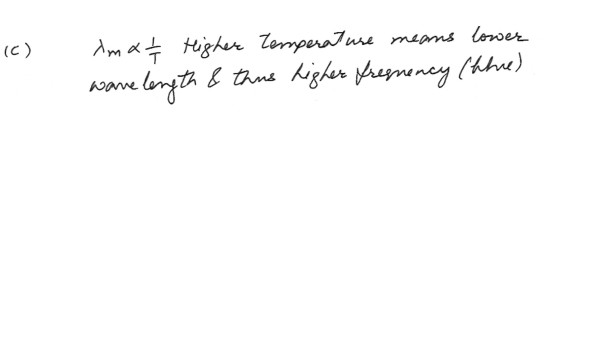 (C) λm ∝ 1/T Higher Temperature means lower
wavelength & thus higher frequency (blue)